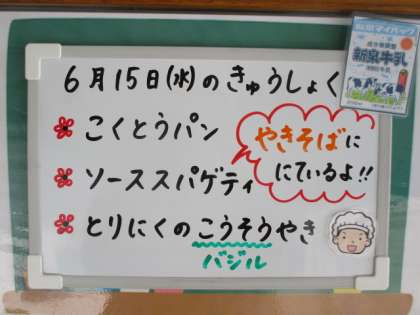 6月15日(水)のきゅうしょく
こくとうパン
ソーススパゲティ
やきそばに
にているよ!!
とりにくのこうそうやき
バジル
新泉牛乳